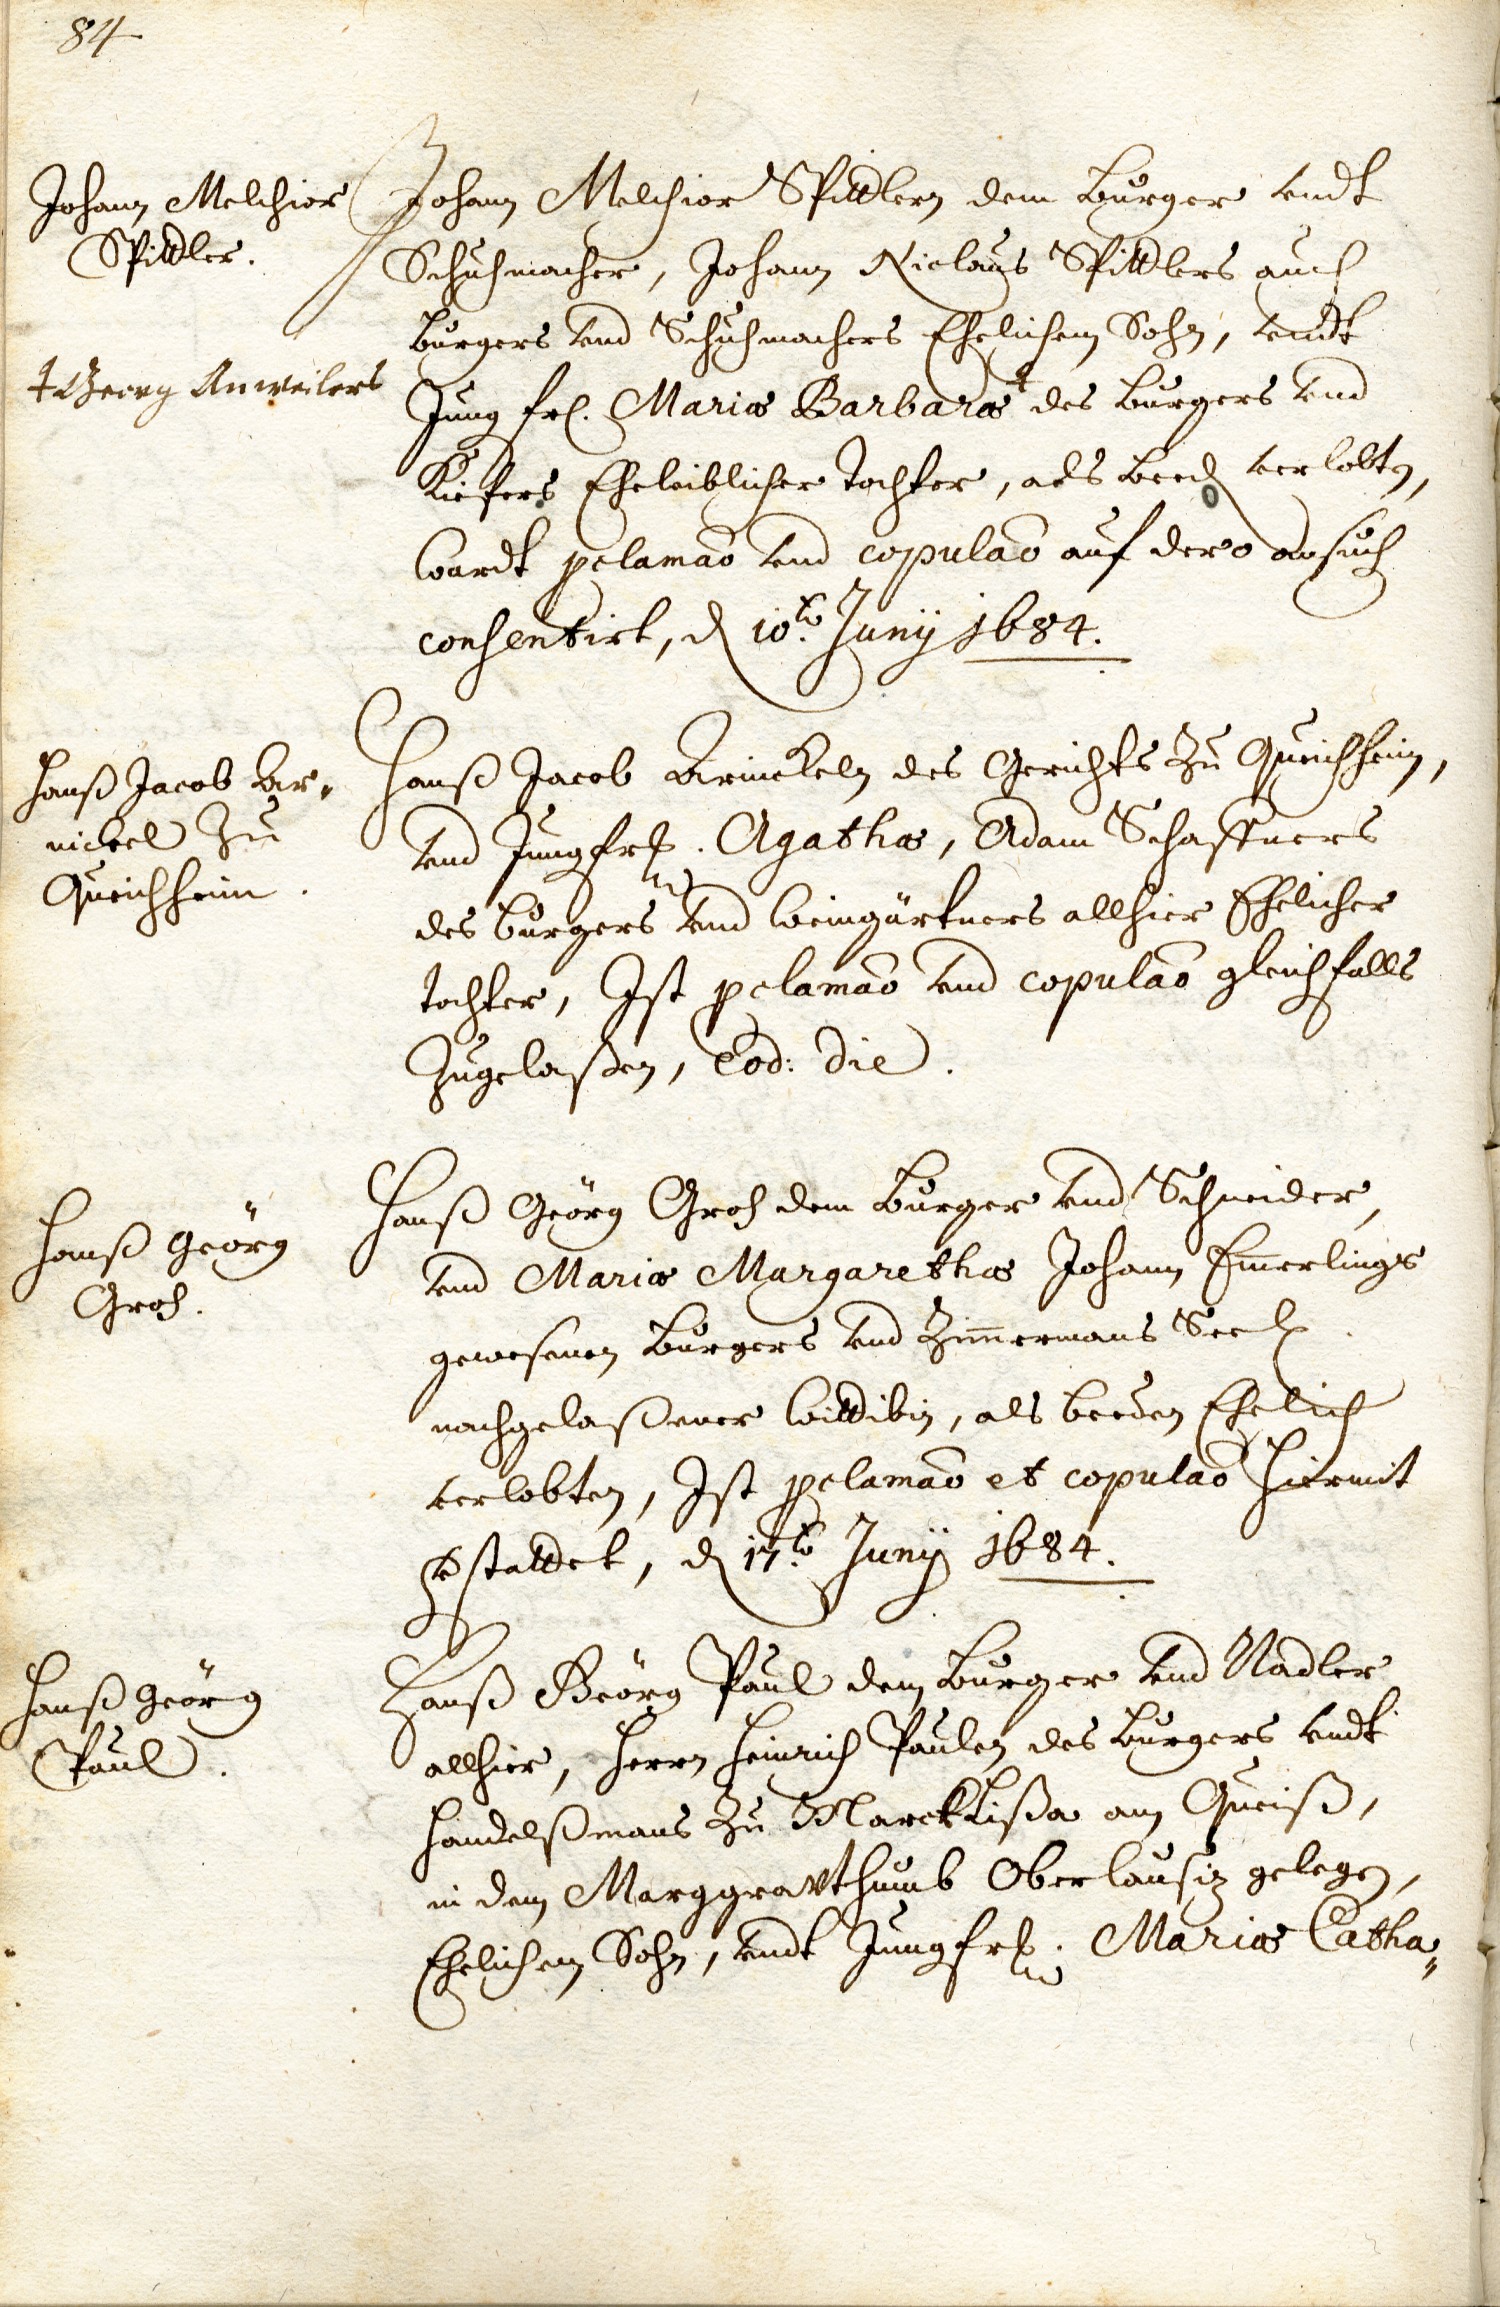 84
Johann Melchior
Spittler.
Johann Melchior Spittlern dem burger vndt
Schuhmacher, Johann Niclaus Spittlers auch
burgers vnd Schuhmachers Ehelichem Sohn, vndt
† Georg Anweilers
Jungfrl. Mariæ Barbaræ † des burgers vnd
Kiefers Eheleiblicher tochter, als beed verlobten,
wardt pclamaō vnd copulaō auf dero ansuch
consentirt, d 10.to Junij 1684.
Hanß Jacob
nickel Zu
Queichheim.
Hanß Jacob des Gerichts Zu Queichheim,
vnd Jungfr. Agathæ, Adam Schaffners
des burgers vnd weingärtners allhier Ehelicher
tochter, Ist pclamaō vnd copulaō gleichfalls
Zugelaßen, Eod: die.
Hanß Geörg
Groh.
Hanß Geörg Groh dem burger vnd Schneider,
vnd Mariæ Margarethæ Johann Em̄erlings
gewesenen burgers vnd Zim̄ermans Seel.
nachgelaßener wittibin, als beeden Ehelich
verlobten, Ist pclamaō et copulaō hiermit
gstattet, d 17.to Junij 1684.
Hanß Geörg
Paul.
Hanß Geörg Paul dem burger vnd Nadler
allhier, Herrn Heinrich Paulen des burgers vndt
Handelßmans Zu MarckLißa am Queiß,
in dem Marggravthumb Oberlausiz gelegen,
Ehelichem Sohn, vndt Jungfr. Mariæ Catha„